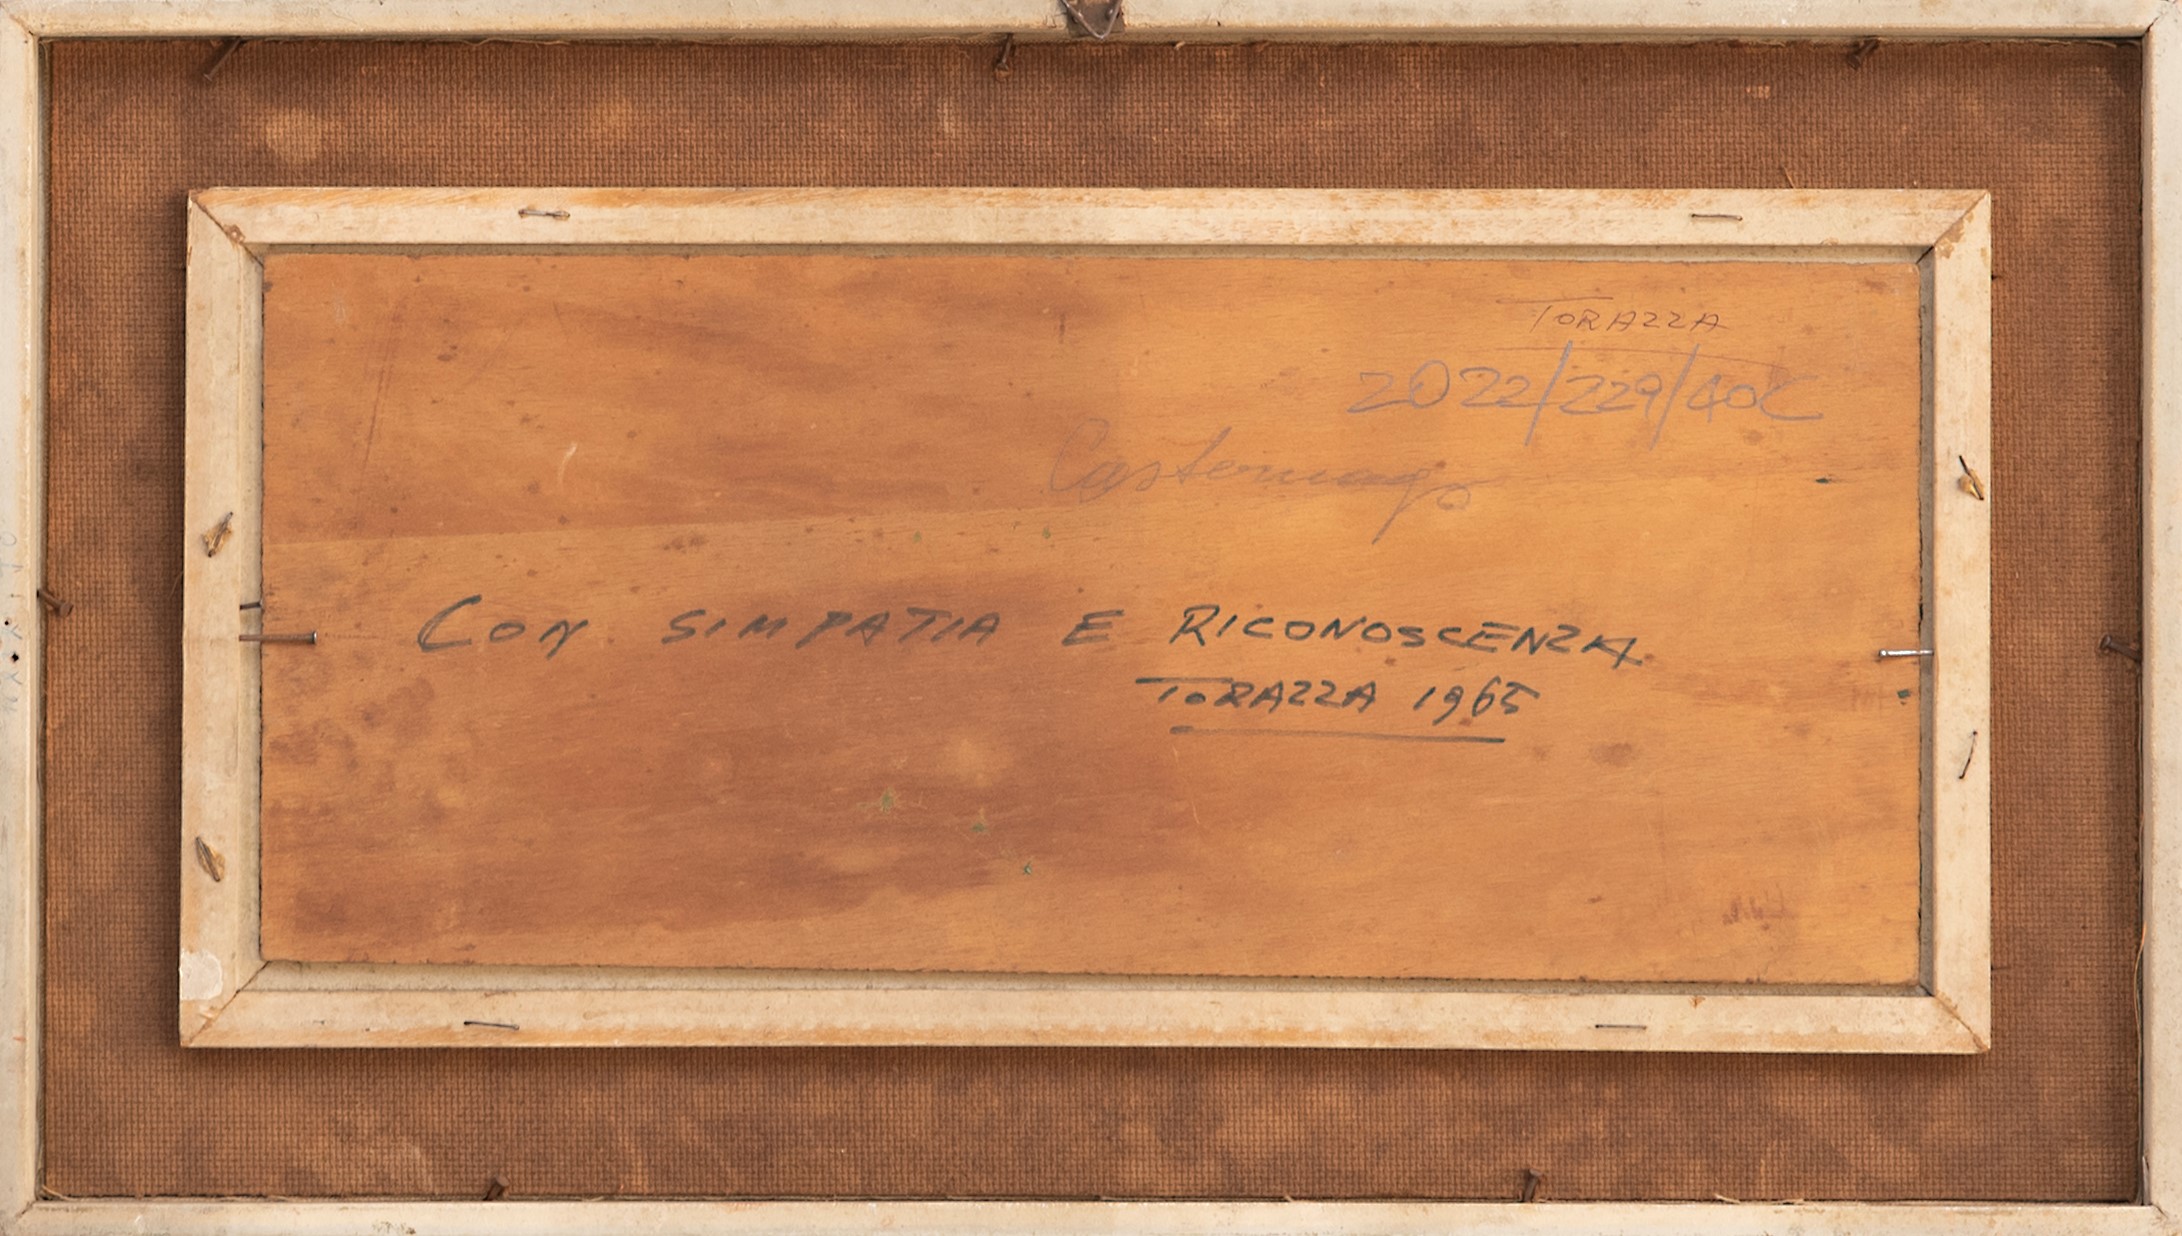 TORAZZA
2022/229/40C
CON SIMPATIA E RICONOSCENZA
TORAZZA 1965